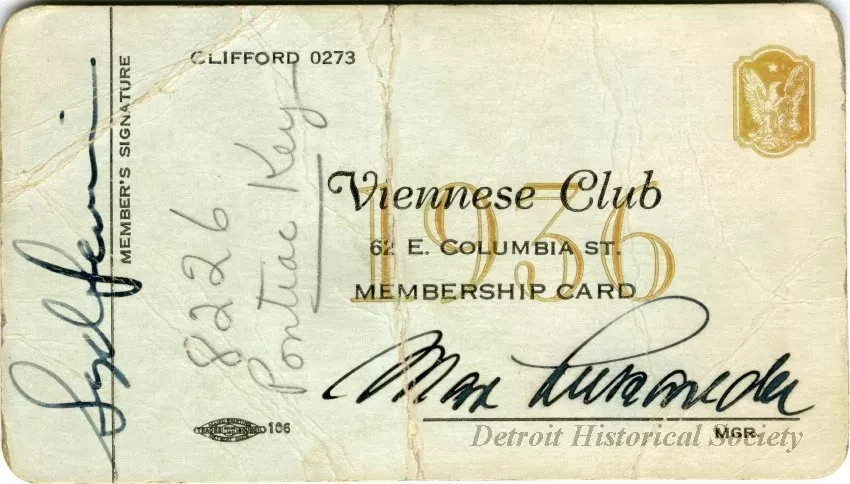 CLIFFORD 0273
Viennese Club
1936
62 E. COLUMBIA ST.
MEMBERSHIP CARD
Max
MGR.
MEMBER'S SIGNATURE
8226
Pontiac Key
106
Detroit Historical Society